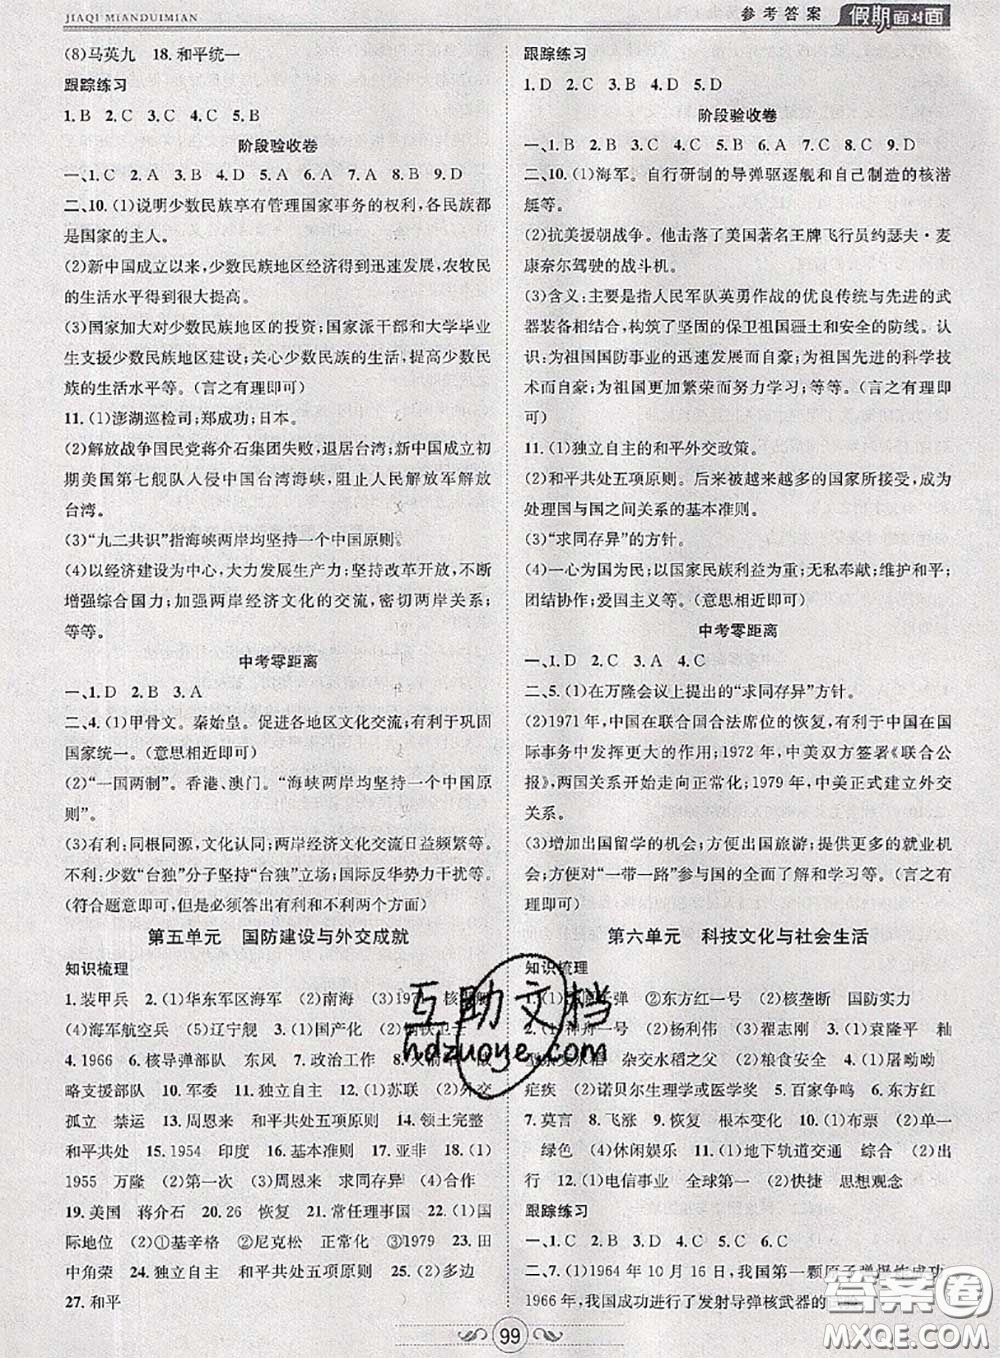 JIAQI MIANDUIMIAN
参考答案 假期面对面
(8)马英九 18.和平统一
跟踪练习
1.B 2.C 3.C 4.C 5.B
阶段验收卷
一、1.C 2.A 3.B 4.D 5.B 6.A 7.A 8.D 9.D
二、10.(1)说明少数民族享有管理国家事务的权利,各民族都
是国家的主人。
(2)新中国成立以来,少数民族地区经济得到迅速发展,农牧民
的生活水平得到很大提高。
(3)国家加大对少数民族地区的投资;国家派干部和大学毕业
生支援少数民族地区建设;关心少数民族的生活,提高少数民族
的生活水平等。(言之有理即可)
11.(1)澎湖巡检司;郑成功;日本。
(2)解放战争国民党蒋介石集团失败,退居台湾;新中国成立初
期美国第七舰队入侵中国台湾海峡,阻止人民解放军解放
台湾。
(3)“九二共识”指海峡两岸均坚持一个中国原则。
(4)以经济建设为中心,大力发展生产力;坚持改革开放,不断
增强综合国力;加强两岸经济文化的交流,密切两岸关系;
等等。
中考零距离
一、1.D 2.B 3.A
二、4.(1)甲骨文。秦始皇。促进各地区文化交流;有利于巩固
国家统一。(意思相近即可)
(2)“一国两制”。香港、澳门。“海峡两岸均坚持一个中国原
则”。
(3)有利:同根同源,文化认同;两岸经济文化交流日益频繁等。
不利:少数“台独”分子坚持“台独”立场;国际反华势力干扰等。
(符合题意即可,但是必须答出有利和不利两个方面)
第五单元 国防建设与外交成就
知识梳理
1.装甲兵 2.(1)华东军区海军 (2)南海 (3)1971 核潜艇
(4)海军航空兵 (5)辽宁舰 3.(1)国产化 (2)钢铁卫士
4.1966 6.核导弹部队 东风 7.政治工作 8.火箭军 战
略支援部队 10.军委 11.独立自主 12.(1)苏联 (2)外交
孤立 禁运 13.周恩来 和平共处五项原则 14.领土完整
和平共处 15.1954 印度 16.基本准则 17.亚非 18.(1)
1955 万隆 (2)第一 (3)周恩来 求同存异 (4)合作
19.美国 蒋介石 20.26 恢复 21.常任理事国 22.(1)国
际地位 (2)①基辛格 ②尼克松 正常化 ③1979 23.田
中角荣 24.独立自主 和平共处五项原则 25.(2)多边
27.和平
跟踪练习
1.D 2.C 3.D 4.D 5.D
阶段验收卷
一、1.B 2.B 3.C 4.B 5.D 6.A 7.C 8.A 9.D
二、10.(1)海军。自行研制的导弹驱逐舰和自己制造的核潜
艇等。
(2)抗美援朝战争。他击落了美国著名王牌飞行员约瑟夫·麦
康奈尔驾驶的战斗机。
(3)含义:主要是指人民军队英勇作战的优良传统与先进的武
器装备相结合,构筑了坚固的保卫祖国疆土和安全的防线。认
识:为祖国国防事业的迅速发展而自豪;为祖国先进的科学技
术而自豪;为祖国更加繁荣而努力学习;等等。(言之有理即
可)
11.(1)独立自主的和平外交政策。
(2)和平共处五项原则。后来被越来越多的国家接受,成为
处理国与国之间关系的基本准则。
(3)“求同存异”的方针。
(4)一心为国为民;以国家民族利益为重;无私奉献;维护和平;
团结协作;爱国主义等。(意思相近即可)
中考零距离
一、1.D 2.C 3.A 4.C
二、5.(1)在万隆会议上提出的“求同存异”方针。
(2)1971 年,中国在联合国合法席位的恢复,有利于中国在国
际事务中发挥更大的作用;1972 年,中美双方签署《联合公
报》,两国关系开始走向正常化;1979 年,中美正式建立外交
关系。
(3)增加出国留学的机会;方便出国旅游;提供更多的就业机
会;方便对“一带一路”参与国的全面了解和学习等。(言之有
理即可)
第六单元 科技文化与社会生活
知识梳理
1.(1)①原子弹 ②东方红一号 (2)核垄断 国防实力
2.(1)神舟一号 (2)杨利伟 (3)翟志刚 3.(1)袁隆平 籼
型杂交水稻 杂交水稻之父 (2)粮食安全 4.(1)屠呦呦
疟疾 (2)诺贝尔生理学或医学奖 5.百家争鸣 6.东方红
7.莫言 8.飞涨 9.恢复 根本变化 10.(1)布料 (2)单一
绿色 (4)休闲娱乐 11.(1)地下轨道交通 综合 (2)出行
12.(1)电信事业 全球第一 (2)快捷 思想观念
跟踪练习
一、1.B 2.C 3.A 4.B 5.C 6.C
二、7.(1)1964 年 10 月 16 日,我国第一颗原子弹爆炸成功;
1966 年,我国成功进行了发射导弹核武器的
99
互助文档
hdzuoye.com
答案圈
MXQE.COM